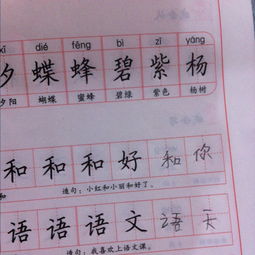 xī dié fēng bì zǐ yáng
夕 蝶 蜂 碧 紫 杨
夕阳 蝴蝶 蜜蜂 碧绿 紫色 杨树
和 和 和 好 和 你
造句：小红和小丽和好了。
语 语 语 文 语 天
造句：我喜欢上语文课。